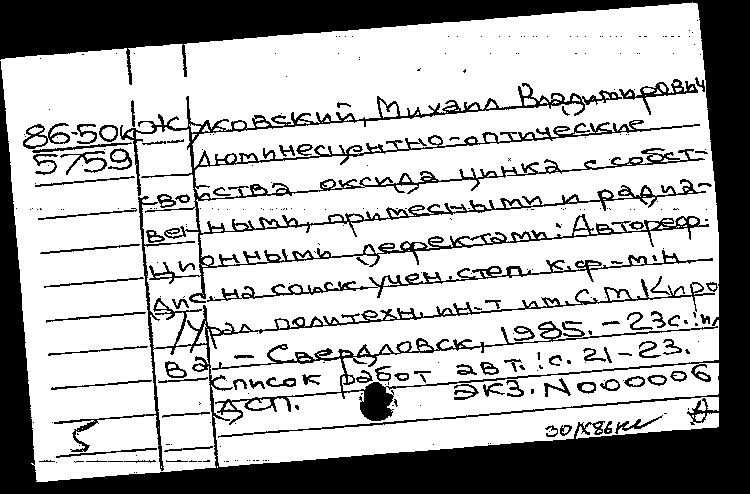 86-50к Жуковский, Михаил Владимирович
5759 Люминесцентно-оптические
свойства оксида цинка с собст-
венными, примесными и радиа-
ционными дефектами: Автореф.
дис. на соиск. учен. степ. к.ф.-м.н.
/Урал. политехн. ин-т им. С.М. Киро
ва. - Свердловск, 1985. - 23с.: ил
Список работ авт.: с. 21-23.
ДСП. Экз. N000006
5
30/X86